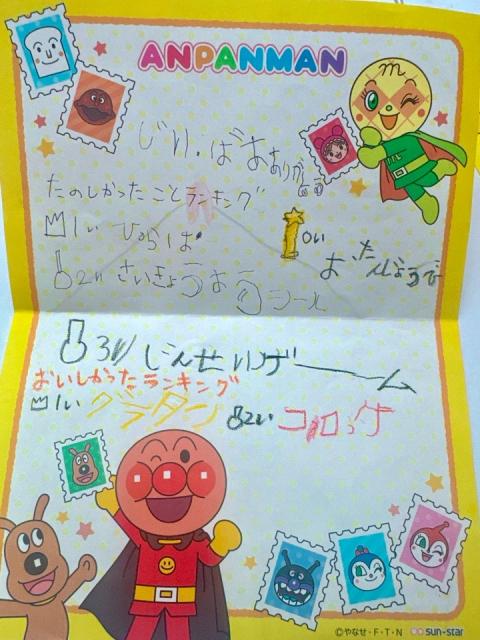 ANPANMAN
じい.ばあ ありが
たのしかったことランキング
1い ひらぱ
0い
おたんじょうび
2い さいきょう
ゴール
3い じんせいゲーム
おいしかったランキング
1い グラタン 2い コロッケ
©やなせ・F・T・N sun-star